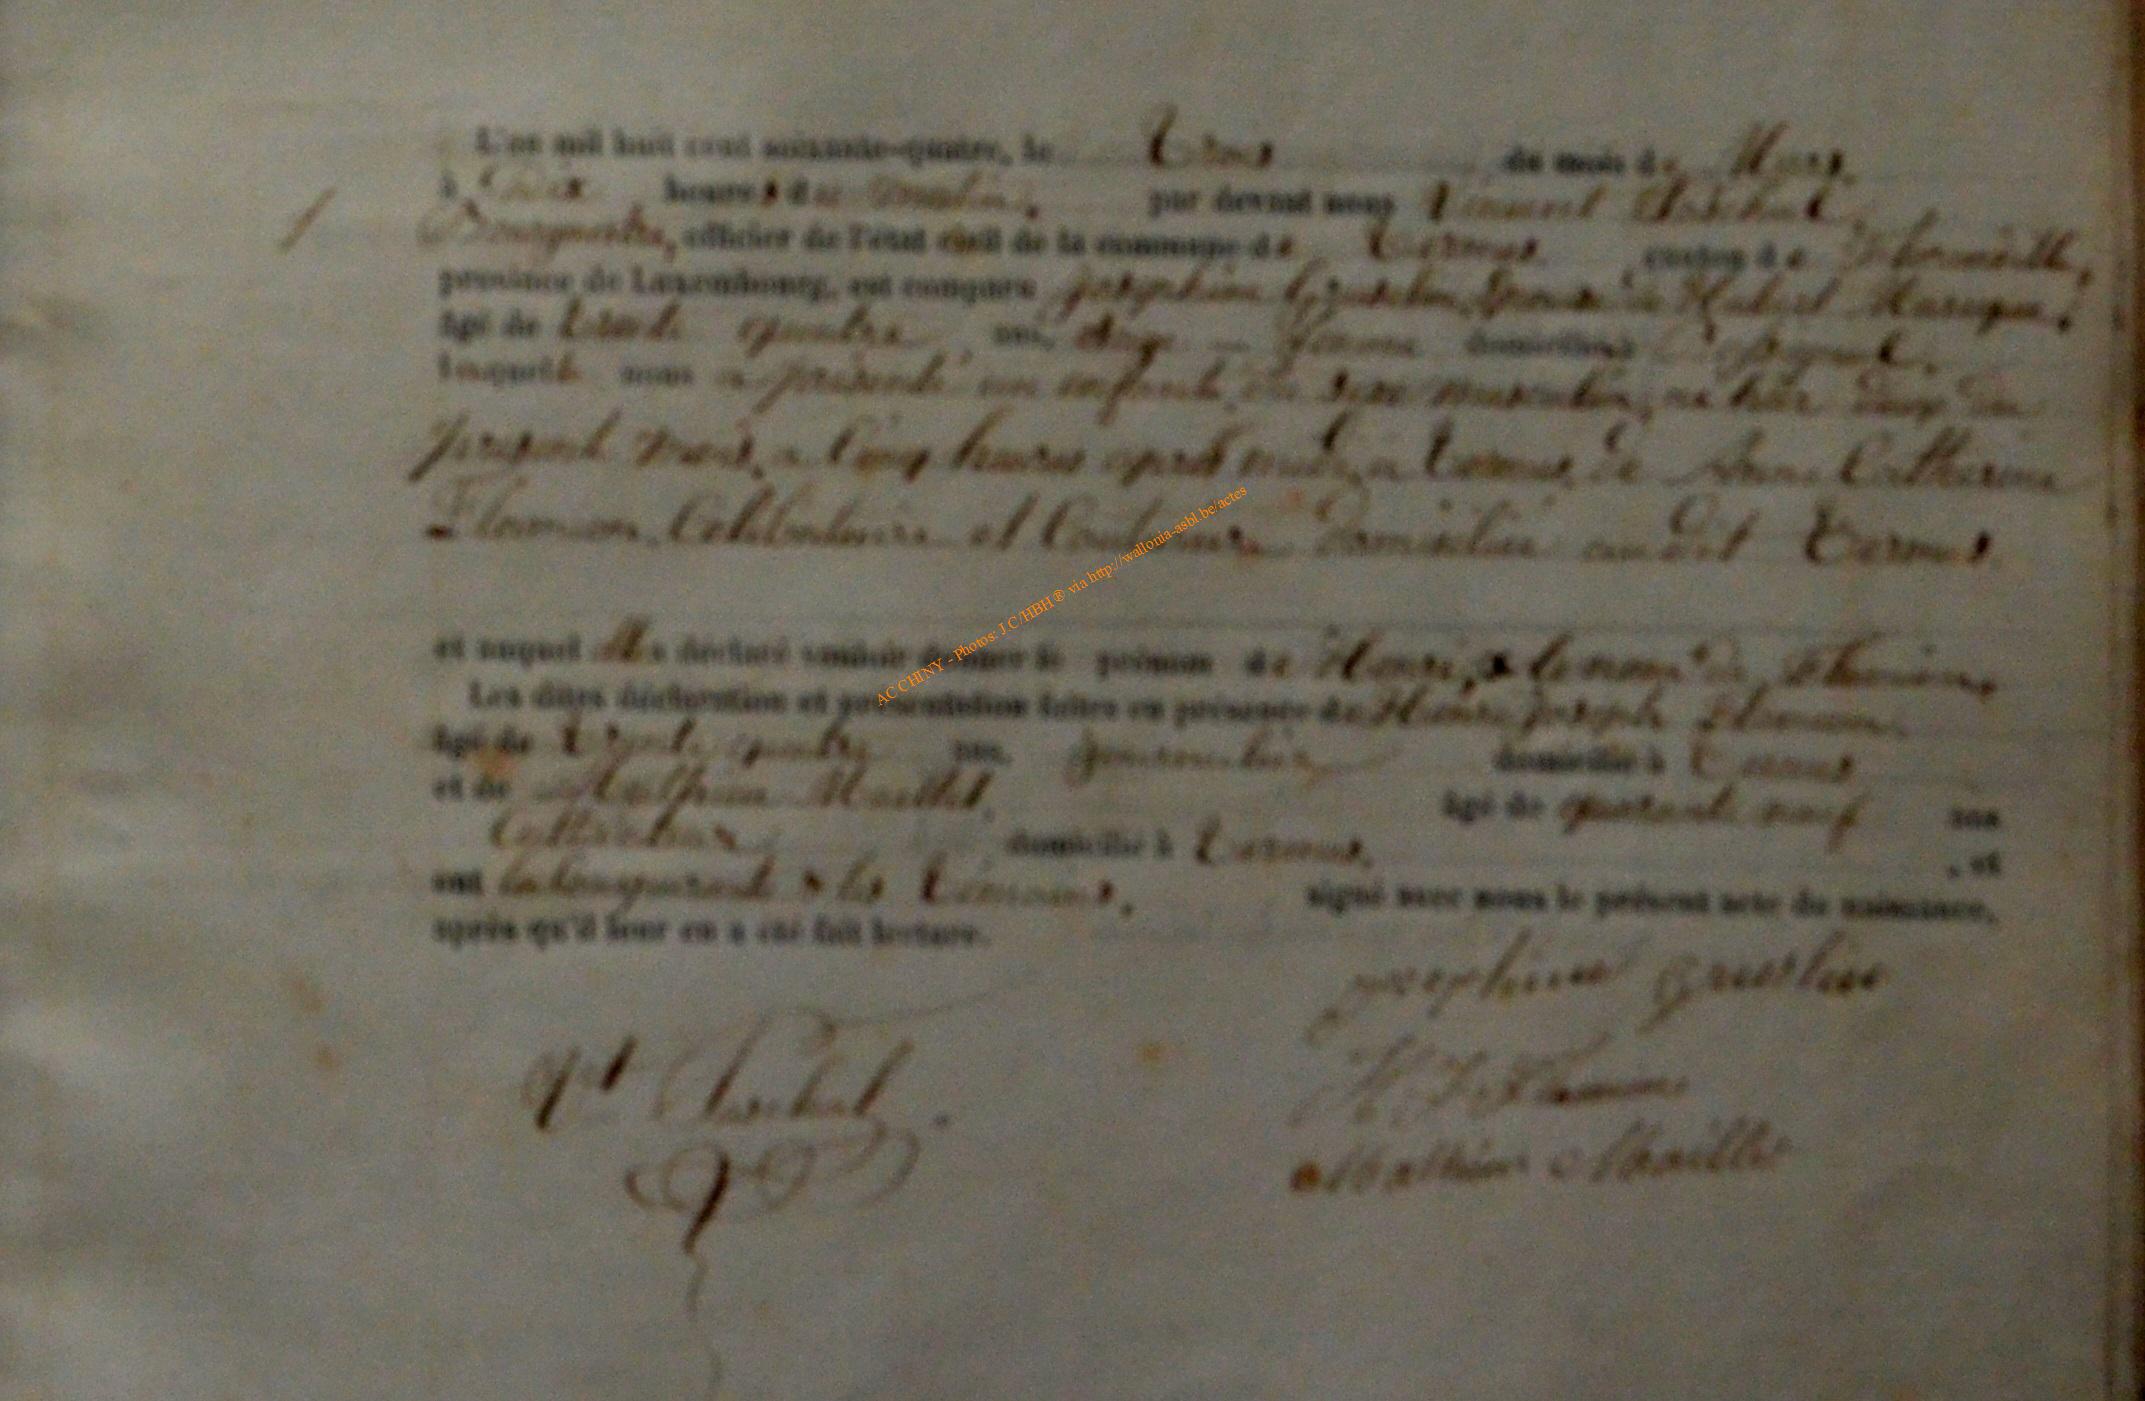 L'an mil huit cent soixante-quatre, le Trois du mois de Mars
à Dix heures du matin, par devant nous Vincent Paschal,
Bourgmestre, officier de l'état civil de la commune de Termes, canton de Florenville,
province de Luxembourg, est comparu Joséphine Grustin, épouse de Hubert
âgé de trente quatre ans, Sage - femme domiciliée à
laquelle nous a présenté un enfant du sexe masculin, né hier deux du
présent mois, à Cinq heures après midi, à Termes, de Anne Catherine
Flamion, Célibataire et Couturière domiciliée au dit Termes
et auquel elle a déclaré vouloir donner le prénom de Henri, & le nom de Flamion,
Les dites déclaration et présentation faites en présence de Henri Joseph Flamion
âgé de Trente quatre ans, journalier domicilié à Termes
et de Mathieu Maillet, âgé de quarante neuf ans
Cultivateur domicilié à Termes, , et
ont la comparante & les Témoins, signé avec nous le présent acte de naissance,
après qu'il leur en a été fait lecture.
josephine grustin
Vt Paschal
H J Flamion
Mathieu Maillet
AC CHINY - Photos: J.C/HBH ® via http://wallonia-asbl.be/actes